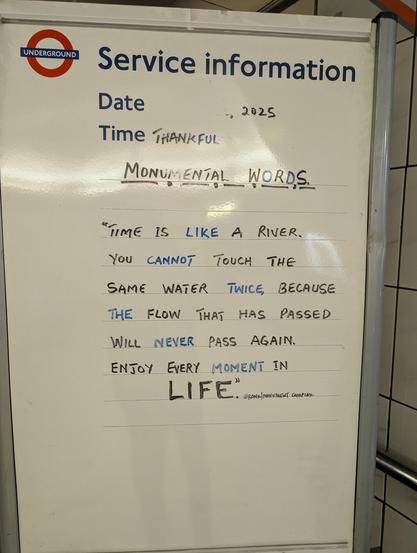 UNDERGROUND
Service information
Date ., 2025
Time THANKFUL
MONUMENTAL WORDS.
"TIME IS LIKE A RIVER.
YOU CANNOT TOUCH THE
SAME WATER TWICE, BECAUSE
THE FLOW THAT HAS PASSED
WILL NEVER PASS AGAIN.
ENJOY EVERY MOMENT IN
LIFE."